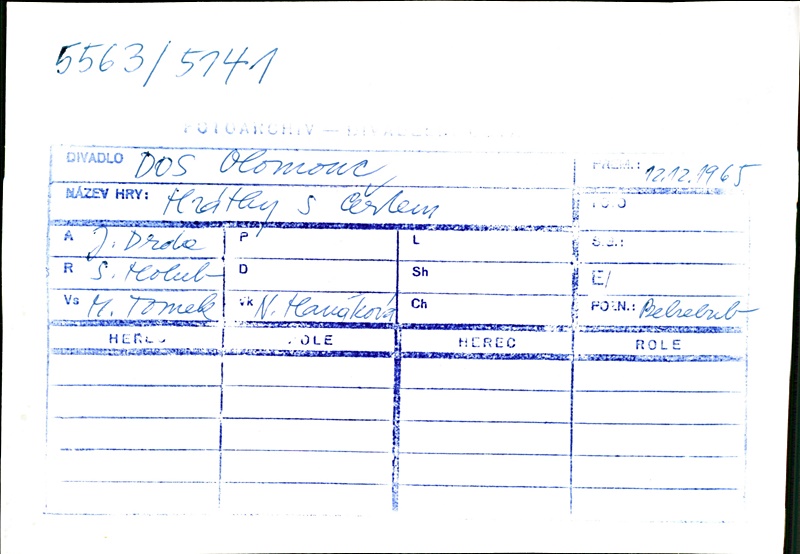 5563/5141
FOTOARCHIV —
DIVADLO DOS Olomouc PREM.: 12.12.1965
NÁZEV HRY: Hrátky s čertem
A J. Drda P L
R S. Holub D Sh E/
Vs M. Tomek Vk N. Hanáková Ch POZN.: Belzebub
HEREC ROLE HEREC ROLE